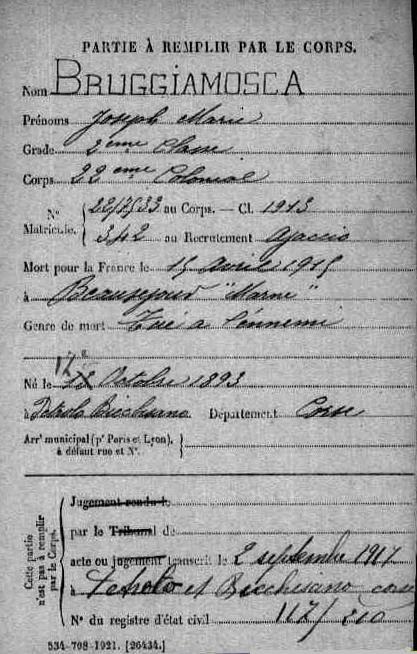 PARTIE À REMPLIR PAR LE CORPS.
Nom BRUGGIAMOSCA
Prénoms Joseph Marie
Grade 2ème Classe
Corps 22ème Colonial
N° Matricule. { 22/2533 au Corps. — Cl. 1913
342 au Recrutement Ajaccio
Mort pour la France le 15 avril 1915
à Beausejour "Marne"
Genre de mort Tué à l'ennemi
12
Né le Octobre 1893
à Bicchisano Département Corse
Arrt municipal (pr Paris et Lyon), à défaut rue et N°. }
Cette partie n'est pas à remplir par le Corps.
Jugement rendu le
par le Tribunal de
acte ou jugement transcrit le 2 septembre 1917
à Petreto et Bicchisano, corse
N° du registre d'état civil 117/210
534-708-1921. [26434.]